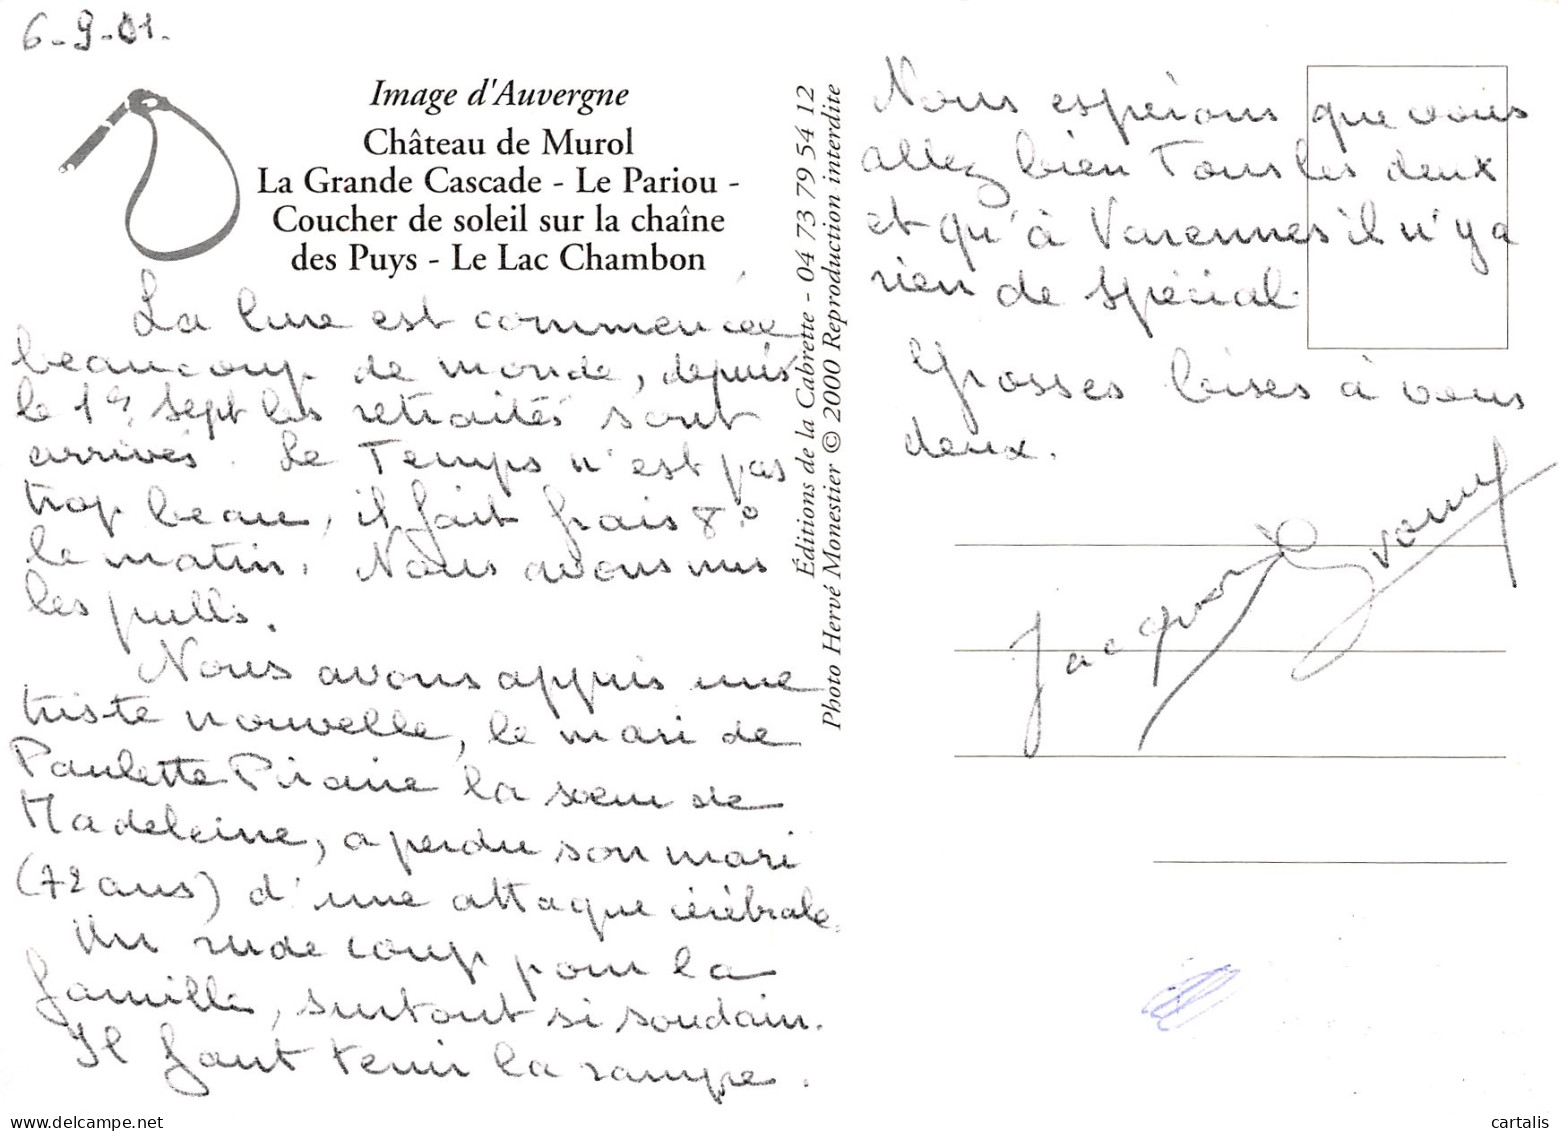 6-9-01.
Image d'Auvergne
Château de Murol
La Grande Cascade - Le Pariou -
Coucher de soleil sur la chaîne
des Puys - Le Lac Chambon
La cure est commencée
beaucoup de monde, depuis
le 1er Sept les retraités sont
arrivés. Le Temps n'est pas
trop beau, il fait frais 8°
le matin. Nous avons mis
les pulls.
Nous avons appris une
triste nouvelle, le mari de
Paulette la sœur de
Madeleine, a perdu son mari
(72 ans) d'une attaque cérébrale.
Un rude coup pour la
famille, surtout si soudain.
Il faut tenir la rampe.
Éditions de la Cabrette - 04 73 79 54 12
Photo Hervé Monestier © 2000 Reproduction interdite
Nous espérons que vous
allez bien Tous les deux
et qu'à Varennes il n'y a
rien de spécial.
Grosses bises à vous
deux.
Jacques Yvonne
cartalis